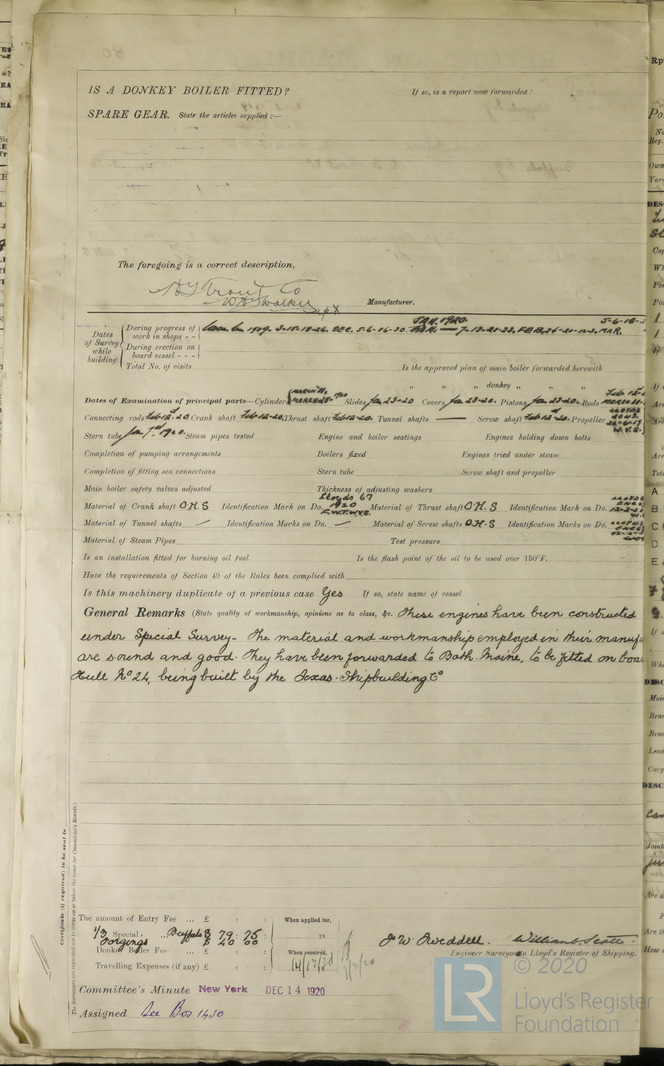 IS A DONKEY BOILER FITTED? If so, is a report now forwarded?
SPARE GEAR. State the articles supplied :—
The foregoing is a correct description,
Manufacturer.
Dates of Survey while building
During progress of work in shops - -
During erection on board vessel - - -
Total No. of visits
Is the approved plan of main boiler forwarded herewith
" " " donkey " " "
Dates of Examination of principal parts—Cylinders Slides Jan 23-20 Covers Jan 23-20. Pistons Jan 23-20. Rods
Connecting rods Feb 12-20. Crank shaft Feb 12-20. Thrust shaft Feb 12-20. Tunnel shafts — Screw shaft Propeller
Stern tube Steam pipes tested Engine and boiler seatings Engines holding down bolts
Completion of pumping arrangements Boilers fixed Engines tried under steam
Completion of fitting sea connections Stern tube Screw shaft and propeller
Main boiler safety valves adjusted Thickness of adjusting washers
Material of Crank shaft O.H.S Identification Mark on Do. Lloyds 67 1920 Material of Thrust shaft O.H.S Identification Mark on Do.
Material of Tunnel shafts — Identification Marks on Do. — Material of Screw shafts O.H.S Identification Marks on Do.
Material of Steam Pipes Test pressure
Is an installation fitted for burning oil fuel Is the flash point of the oil to be used over 150°F.
Have the requirements of Section 49 of the Rules been complied with
Is this machinery duplicate of a previous case Yes If so, state name of vessel
General Remarks (State quality of workmanship, opinions as to class, &c. These engines have been constructed
under Special Survey- The material and workmanship employed in their manuf
are sound and good. They have been forwarded to Bath. Maine, to be fitted on boa
Hull No 24, being built by the Texas Shipbuilding Co
Certificate (if required) to be sent to
The amount of Entry Fee ... £ : : When applied for,
1/3 Special Buffalo $ 79 : 75 19
Forgings $ 40 00
Donkey Boiler Fee When received,
Travelling Expenses (if any) £ : :
J W Tweddell. William Scott
Engineer Surveyor to Lloyd's Register of Shipping.
Committee's Minute New York DEC 14 1920
Assigned See Bos 1430
© 2020
LR Lloyd's Register
Foundation